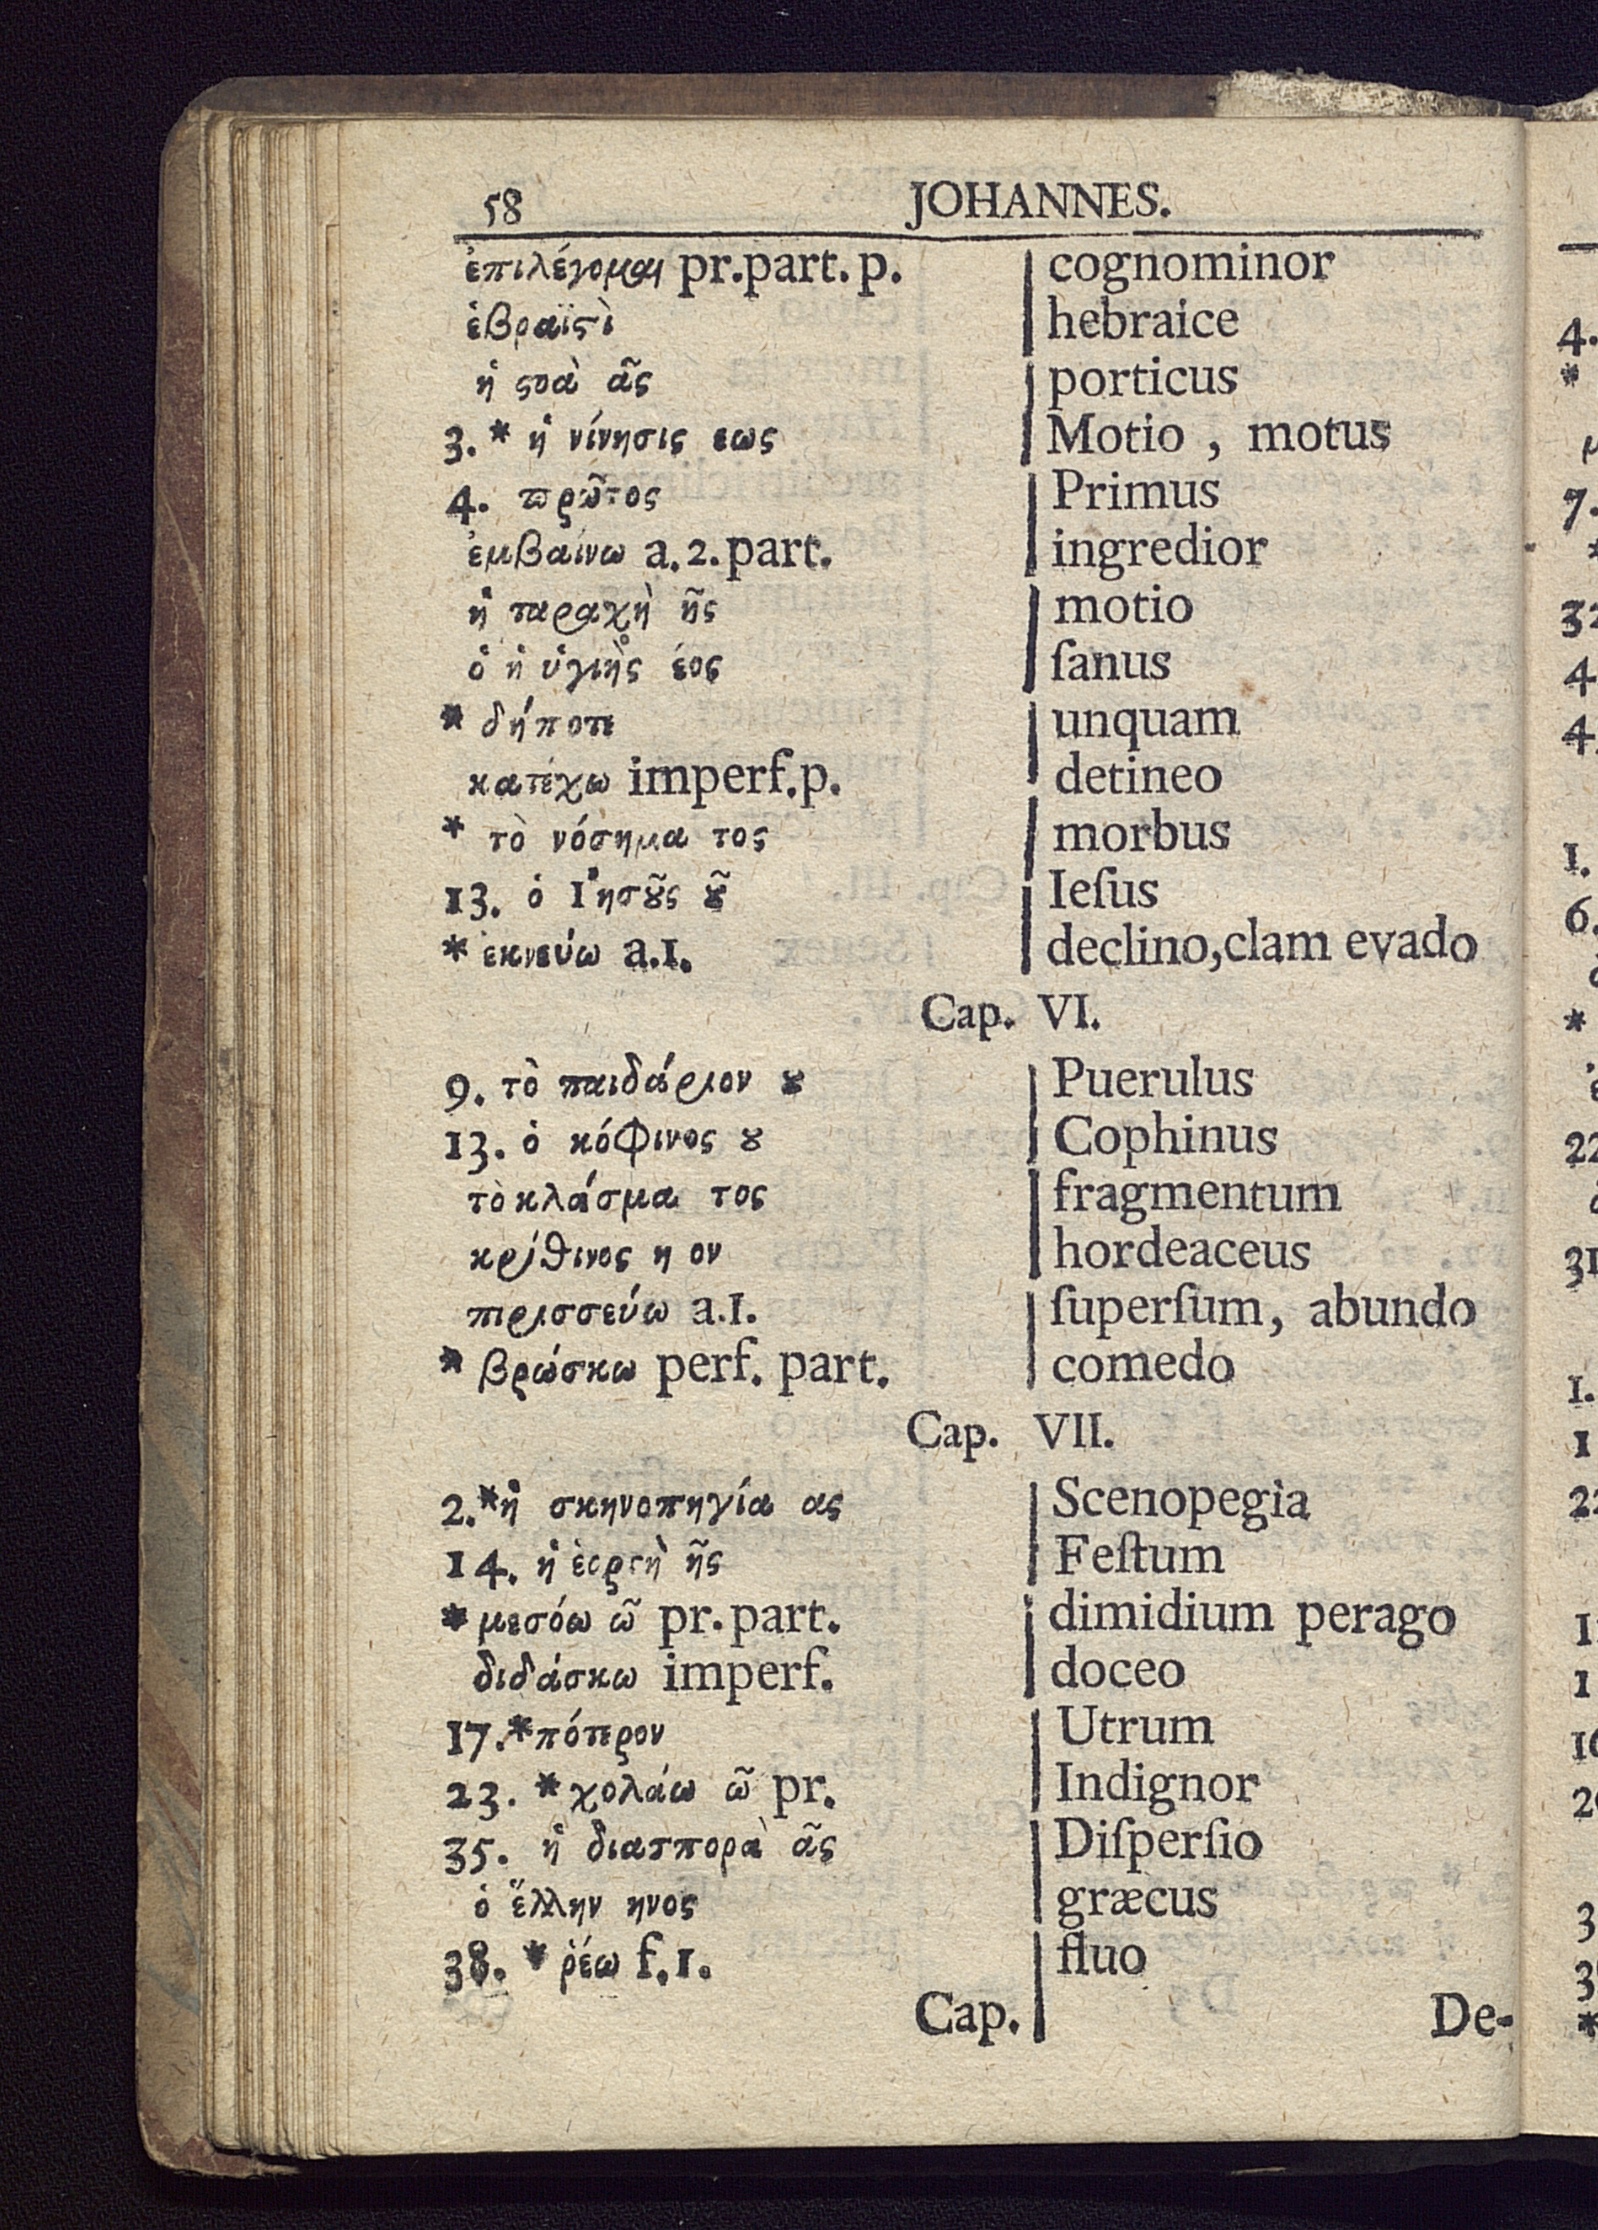 58 JOHANNES.
ἐπιλέγομαι pr.part.p. cognominor
ἑβραϊςὶ hebraice
ἡ ςοὰ ᾶς porticus
3. * ἡ νίνησις εως Motio, motus
4. πρῶτος Primus
ἐμβαίνω a.2.part. ingredior
ἡ ταραχὴ ῆς motio
ὁ ἡ ὑγιὴς έος ſanus
* δήποτε unquam
κατέχω imperf.p. detineo
* τὸ νόσημα τος morbus
13. ὁ Ἰησȣ͂ς ȣ͂ Ieſus
* ἐκνεύω a.1. declino,clam evado
Cap. VI.
9. τὸ παιδάριον ȣ Puerulus
13. ὁ κόφινος ȣ Cophinus
τὸ κλάσμα τος fragmentum
κρίθινος η ον hordeaceus
περισσεύω a.1. ſuperſum, abundo
* βρώσκω perf. part. comedo
Cap. VII.
2.* ἡ σκηνοπηγία ας Scenopegia
14. ἡ ἑορτὴ ῆς Feſtum
* μεσόω ῶ pr.part. dimidium perago
διδάσκω imperf. doceo
17.* πότερον Utrum
23. * χολάω ῶ pr. Indignor
35. ἡ διασπορὰ ᾶς Diſperſio
ὁ ἕλλην ηνος græcus
38. * ῥέω f.1. fluo
Cap. De-
4.
*
7.
4
4
1.
6.
*
22
31
1.
1
1
1
3
*